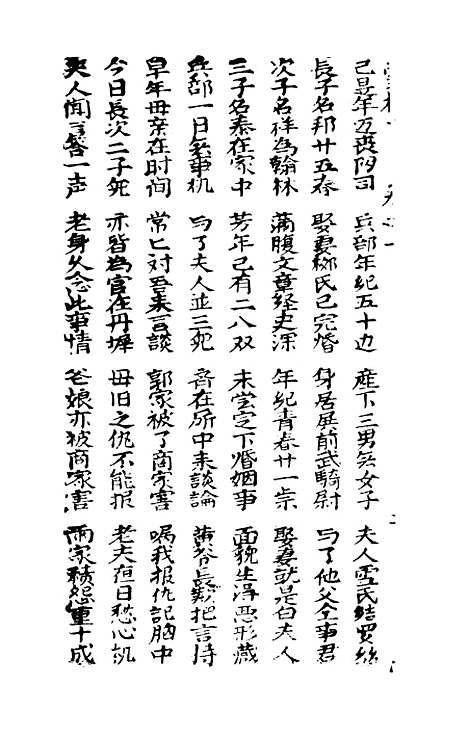 己是年迈丧阴司 兵部年纪五十边 産下三男無女子 夫人雪氏结罗丝
長子名邦廿五春 娶妻柳氏已完婚 身居殿前武騎尉 与了他父仝事君
次子名祥為翰林 满腹文章經史深 年紀青春廿一崇 娶妻就是白夫人
三子名泰在家中 芳年已有二八双 未曾定下婚姻事 面貌生得悪形藏
兵部一日無事机 与了夫人並三兒 齊在所中来談論 黄谷長歎把言
早年母亲在时间 常匕対吾来言談 郭家被了商家害 嘱我报仇記胸中
今日長次二子兒 亦皆為官在丹墀 母旧之仇不能报 老夫夜日愁心机
夫人聞言答一声 老身久念此事情 爸娘亦被商家害 兩家積怨重十成